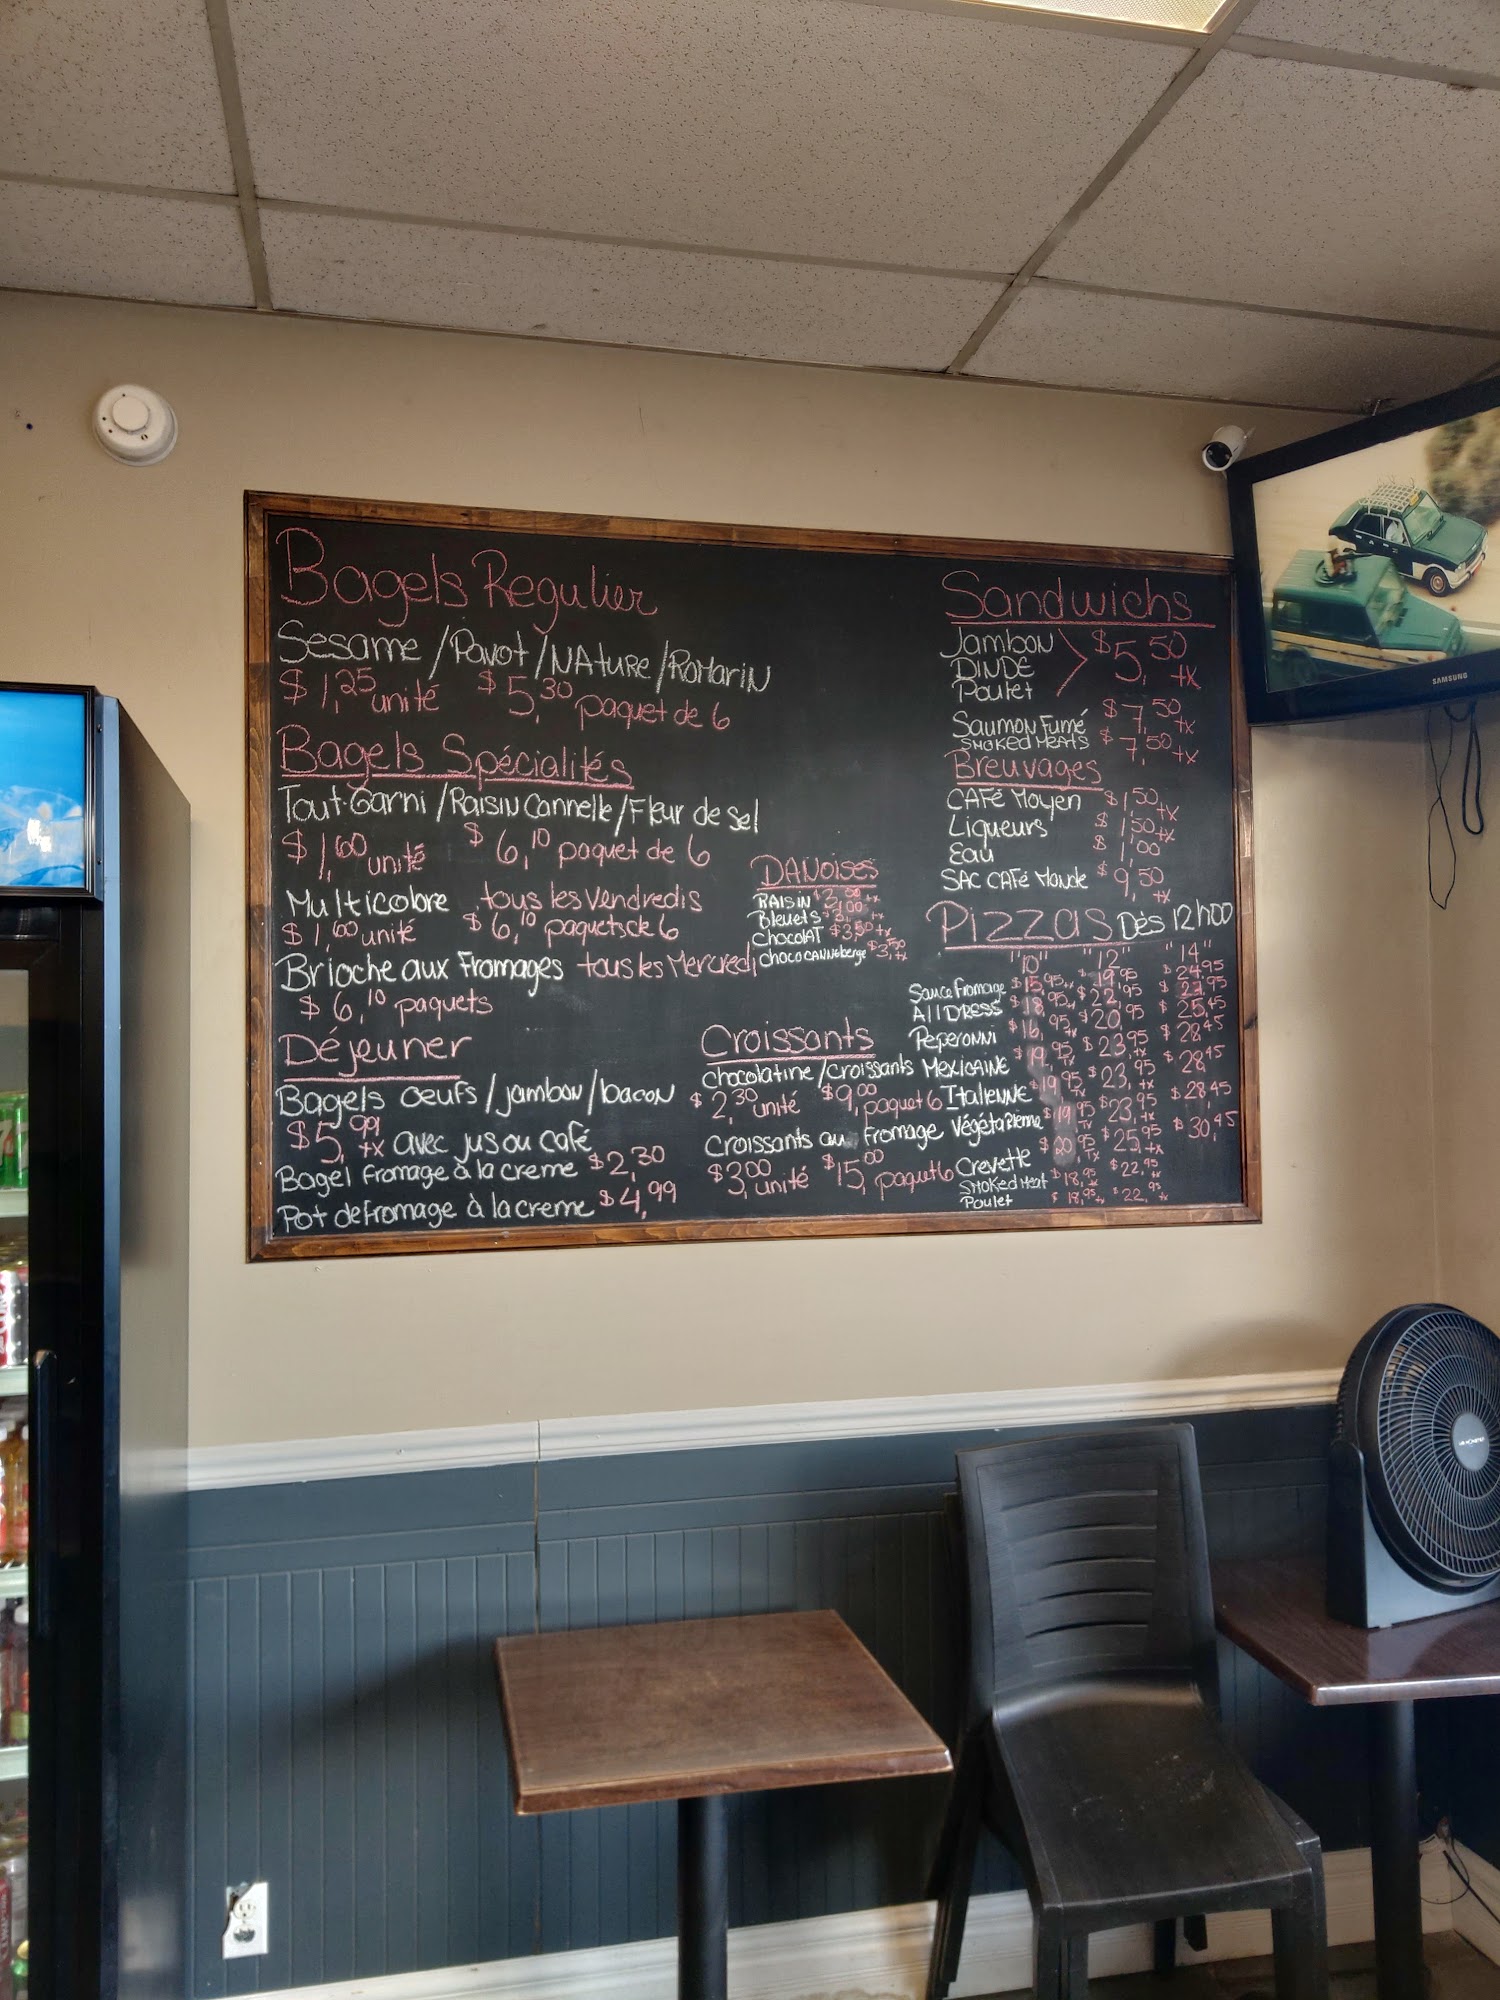 Bagels Regulier
Sesame / Pavot / NATURE / ROMARIN
$1,25 unité $5,30 paquet de 6
Bagels Spécialités
Tout Garni / RAISIN Cannelle / Fleur de sel
$1,60 unité $6,10 paquet de 6
Multicolore tous les Vendredis
$1,60 unité $6,10 paquets de 6
Brioche aux Fromages tous les Mercredi
$6,10 paquets
Déjeuner
Bagels oeufs / jambon / bacon
$5,99 tx avec jus ou café
Bagel fromage à la creme $2,30
Pot de fromage à la creme $4,99
DANOISES
RAISIN
Bleuets
Chocolat $3,50 tx
choco canneberge $3,50 tx
Croissants
Chocolatine / croissants
$2,30 unité $9,00 paquet 6
Croissants au fromage
$3,00 unité $15,00 paquet 6
Sandwichs
Jambon
DINDE
Poulet
$5,50 tx
Saumon Fumé $7,50 tx
SMOKED MEATS $7,50 tx
Breuvages
CAFé Moyen $1,50 tx
Liqueurs $1,50 tx
Eau $1,00
SAC CAFé Monde $9,50 tx
Pizzas Dès 12h00
"10" "12" "14"
Sauce fromage $15,95 $19,95 $24,95
All DRESS $18,95 $22,95
Peperonni $16,95 $20,95 $25,45
MEXICAINE $19,95 $23,95 $28,45
ITALIENNE $19,95 $23,95 $28,45
Végétarienne $19,95 $23,95 $28,45
Crevette $20,95 $25,95 $30,45
SMOKED Meat $18,95 $22,95
Poulet $18,95 $22,95
SAMSUNG